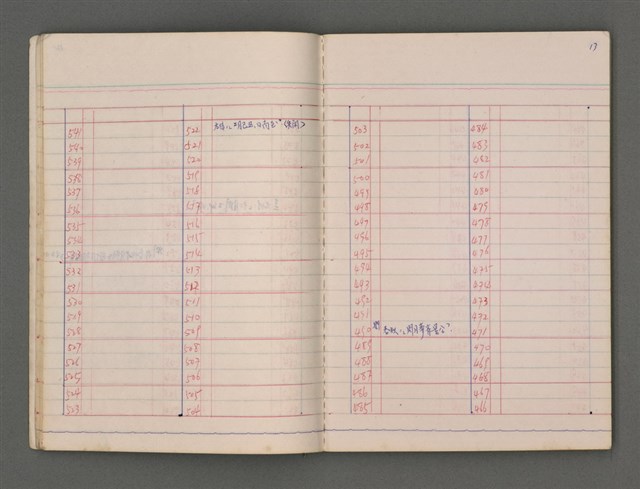 17
541
540
539
538
537
536
535
534
533
532
531
530
529
528
527
526
525
524
523
522
521
520
519
518
517
516
515
514
513
512
511
510
509
508
507
506
505
504
503
502
501
500
499
498
497
496
495
494
493
492
491
490
489
488
487
486
485
484
483
482
481
480
479
478
477
476
475
474
473
472
471
470
469
468
467
466